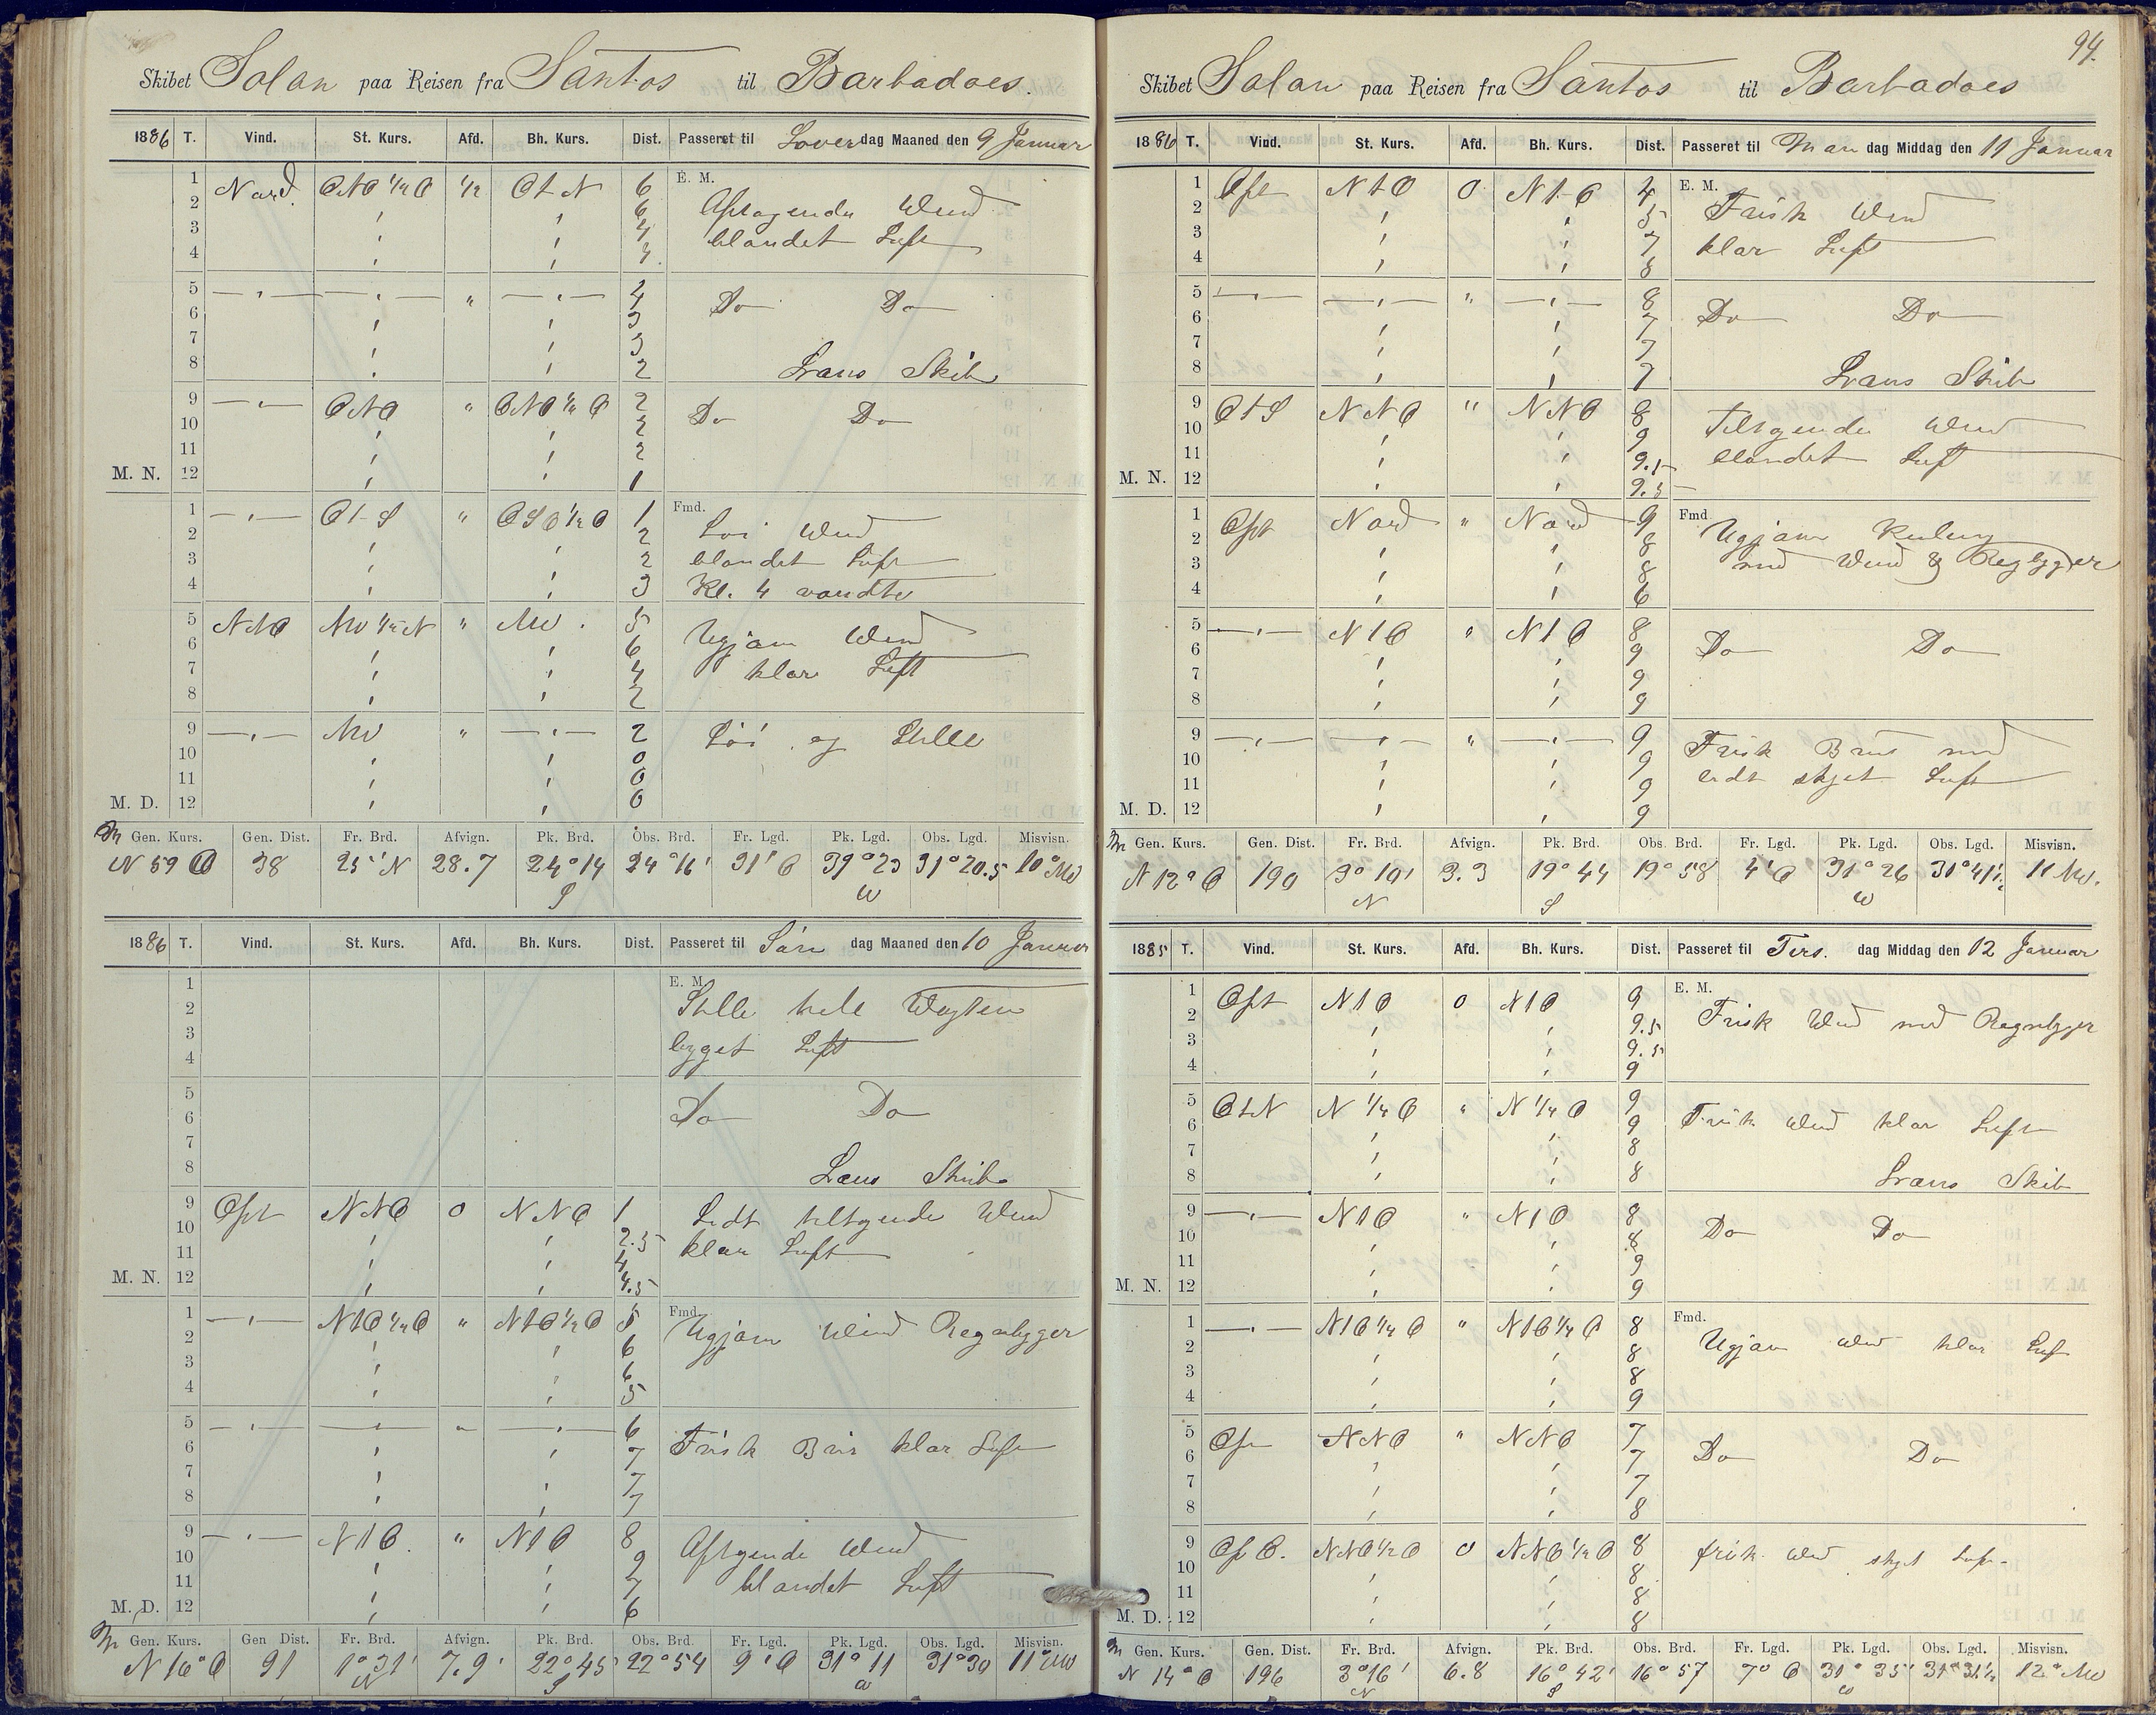 Skibet Solan paa Reisen fra Santos til Barbadoes.
1886 T. Vind. St. Kurs. Afd. Bh. Kurs. Dist. Passeret til Löver dag Maaned den 9 Januar
E. M.
1 Nord. ONO ½ O ½ O t N 6 Aftagende Wind
2 6
3 4 blandet Luft
4 4
5 4 Do Do
6 3
7 3
8 2 Lans Skib
9 ONO " ONO ½ O 2 Do Do
10 2
11 2
M. N. 12 1
Fmd.
1 O t S " OSO ½ O 1 Löi Wind
2 2
3 2 blandet Luft
4 3 Kl. 4 vendte
5 NNO NW ½ N " NW. 5 Ugjävn Wind
6 6
7 4 klar Luft
8 2
9 NW " 2 Löi og Stille
10 0
11 0
M. D. 12 0
Gen. Kurs. Gen. Dist. Fr. Brd. Afvign. Pk. Brd. Obs. Brd. Fr. Lgd. Pk. Lgd. Obs. Lgd. Misvisn.
N 59 O 38 25' N 28.7 24° 14 24° 16' 31' O 31° 23 31° 20.5 10° NW
S W
1886 T. Vind. St. Kurs. Afd. Bh. Kurs. Dist. Passeret til Sön dag Maaned den 10 Januar
E. M.
1 Stille hele Wagten
2
3 bygget Luft
4
5 Do Do
6
7
8 Lans Skib
9 Ost NNO 0 NNO 1 Lidt tiltgende Wind
10 2.5
11 4 klar Luft
M. N. 12 4.5
Fmd.
1 N t O ½ O " N t O ½ O 5 Ugjävn Wind Regnbyger
2 6
3 6
4 5
5 " 6 Frisk Bris klar Luft
6 7
7 7
8 7
9 N t O. " N t O 8 Aftgende Wind
10 9
11 7 blandet Luft
M. D. 12 6
Gen. Kurs. Gen Dist. Fr. Brd. Afvign. Pk. Brd. Obs. Brd. Fr. Lgd. Pk. Lgd. Obs. Lgd. Misvisn.
N 16° O 91 1° 31' 7.9' 22° 45' 22° 54 9' O 31° 11 31° 30 11° NW
N S W
94.
Skibet Solan paa Reisen fra Santos til Barbadoes
1886 T. Vind. St. Kurs. Afd. Bh. Kurs. Dist. Passeret til Man dag Middag den 11 Januar
E. M.
1 Ost N t O 0 N t O 4 Frisk Wind
2 5
3 7 klar Luft
4 8
5 " 8 Do Do
6 7
7 7
8 7 Lans Skib
9 O t S NNO " NNO 8 Teltgende Wind
10 9
11 9.5 blandet Luft
M. N. 12 9.5
Fmd.
1 Ost Nord " Nord 9 Ugjävn Kuling
2 8
3 8 med Wind & Regbyger
4 6
5 N t O " N t O 8 Do Do
6 9
7 9
8 9
9 " 9 Frisk Bris med
10 9
11 9 lidt skyet Luft
M. D. 12 9
Gen. Kurs. Gen. Dist. Fr. Brd. Afvign. Pk. Brd. Obs. Brd. Fr. Lgd. Pk. Lgd. Obs. Lgd. Misvisn.
N 12° O 190 3° 10' 3.3 19° 44 19° 58 4' O 31° 26 31° 41½ 11 NW.
N S W
1885 T. Vind. St. Kurs. Afd. Bh. Kurs. Dist. Passeret til Tirs. dag Middag den 12 Januar
E. M.
1 Ost N t O 0 N t O 9 Frisk Wind med Regnbyger
2 9.5
3 9.5
4 9
5 O t N N ¼ O " N ¼ O 9 Frisk Wind klar Luft
6 9
7 8
8 8 Lans Skib
9 N t O " N t O 8 Do Do
10 8
11 9
M. N. 12 9
Fmd.
1 N t O ¼ O " N t O ¼ O 8 Ugjävn Wind klar Luft
2 8
3 8
4 9
5 Ost NNO " NNO 7 Do Do
6 7
7 7
8 8
9 NNO ½ O 0 NNO ½ O 8 frisk Wind skyet Luft
10 8
11 8
M. D. 12 8
Gen. Kurs. Gen. Dist. Fr. Brd. Afvign. Pk. Brd. Obs. Brd. Fr. Lgd. Pk. Lgd. Obs. Lgd. Misvisn.
N 14° O 196 3° 16' 6.8 16° 42' 16° 57 7' O 31° 35' 31° 31½ 12° NW
N S W